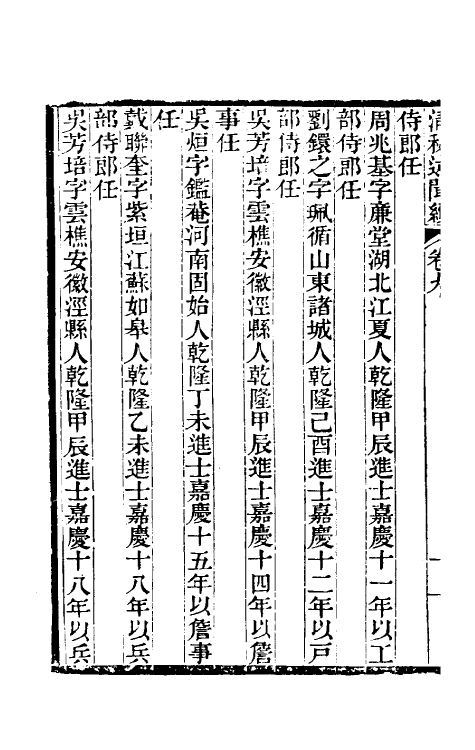 清秘述聞續 卷九
侍郎任
周兆基字廉堂湖北江夏人乾隆甲辰進士嘉慶十一年以工
部侍郎任
劉鐶之字珮循山東諸城人乾隆己酉進士嘉慶十二年以戸
部侍郎任
吳芳培字雲樵安徽涇縣人乾隆甲辰進士嘉慶十四年以詹
事任
吳烜字鑑菴河南固始人乾隆丁未進士嘉慶十五年以詹事
任
戴聯奎字紫垣江蘇如皋人乾隆乙未進士嘉慶十八年以兵
部侍郎任
吳芳培字雲樵安徽涇縣人乾隆甲辰進士嘉慶十八年以兵